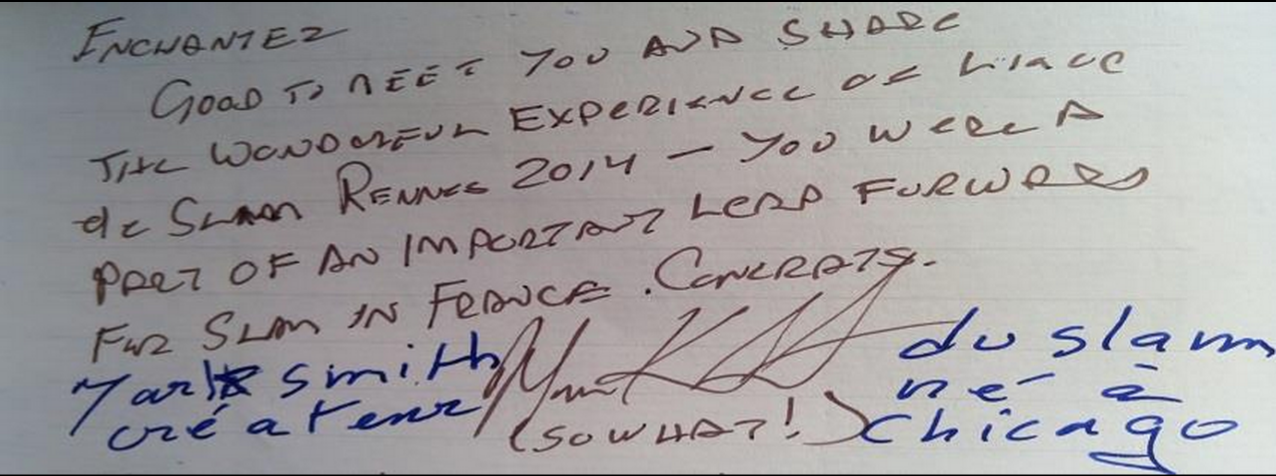 ENCHANTEZ
GOOD TO MEET YOU AND SHARE
THE WONDERFUL EXPERIENCE OF
de SLAM RENNES 2014 — YOU WERE A
PART OF AN IMPORTANT LEAP FORWARD
FOR SLAM IN FRANCE. CONGRATS.
Mark smith
créateur
(SO WHAT!)
du slam
né à
chicago